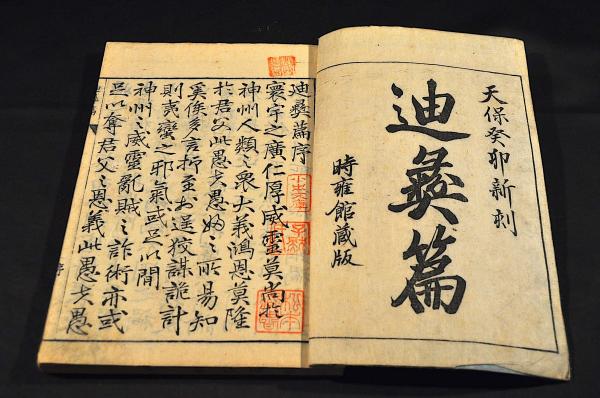 天保癸卯新刻
迪彜篇
時雍館蔵版
迪彜篇序
寰宇之廣仁厚威靈莫尚於
神州人類之衆大義鴻恩莫隆
於君父此愚夫愚婦之所易知
奚俟多言抑至於逞狡謀詭計
則夷蠻之邪氣或足以間
神州之威靈亂賊之詐術亦或
足以奪君父之恩義此愚夫愚